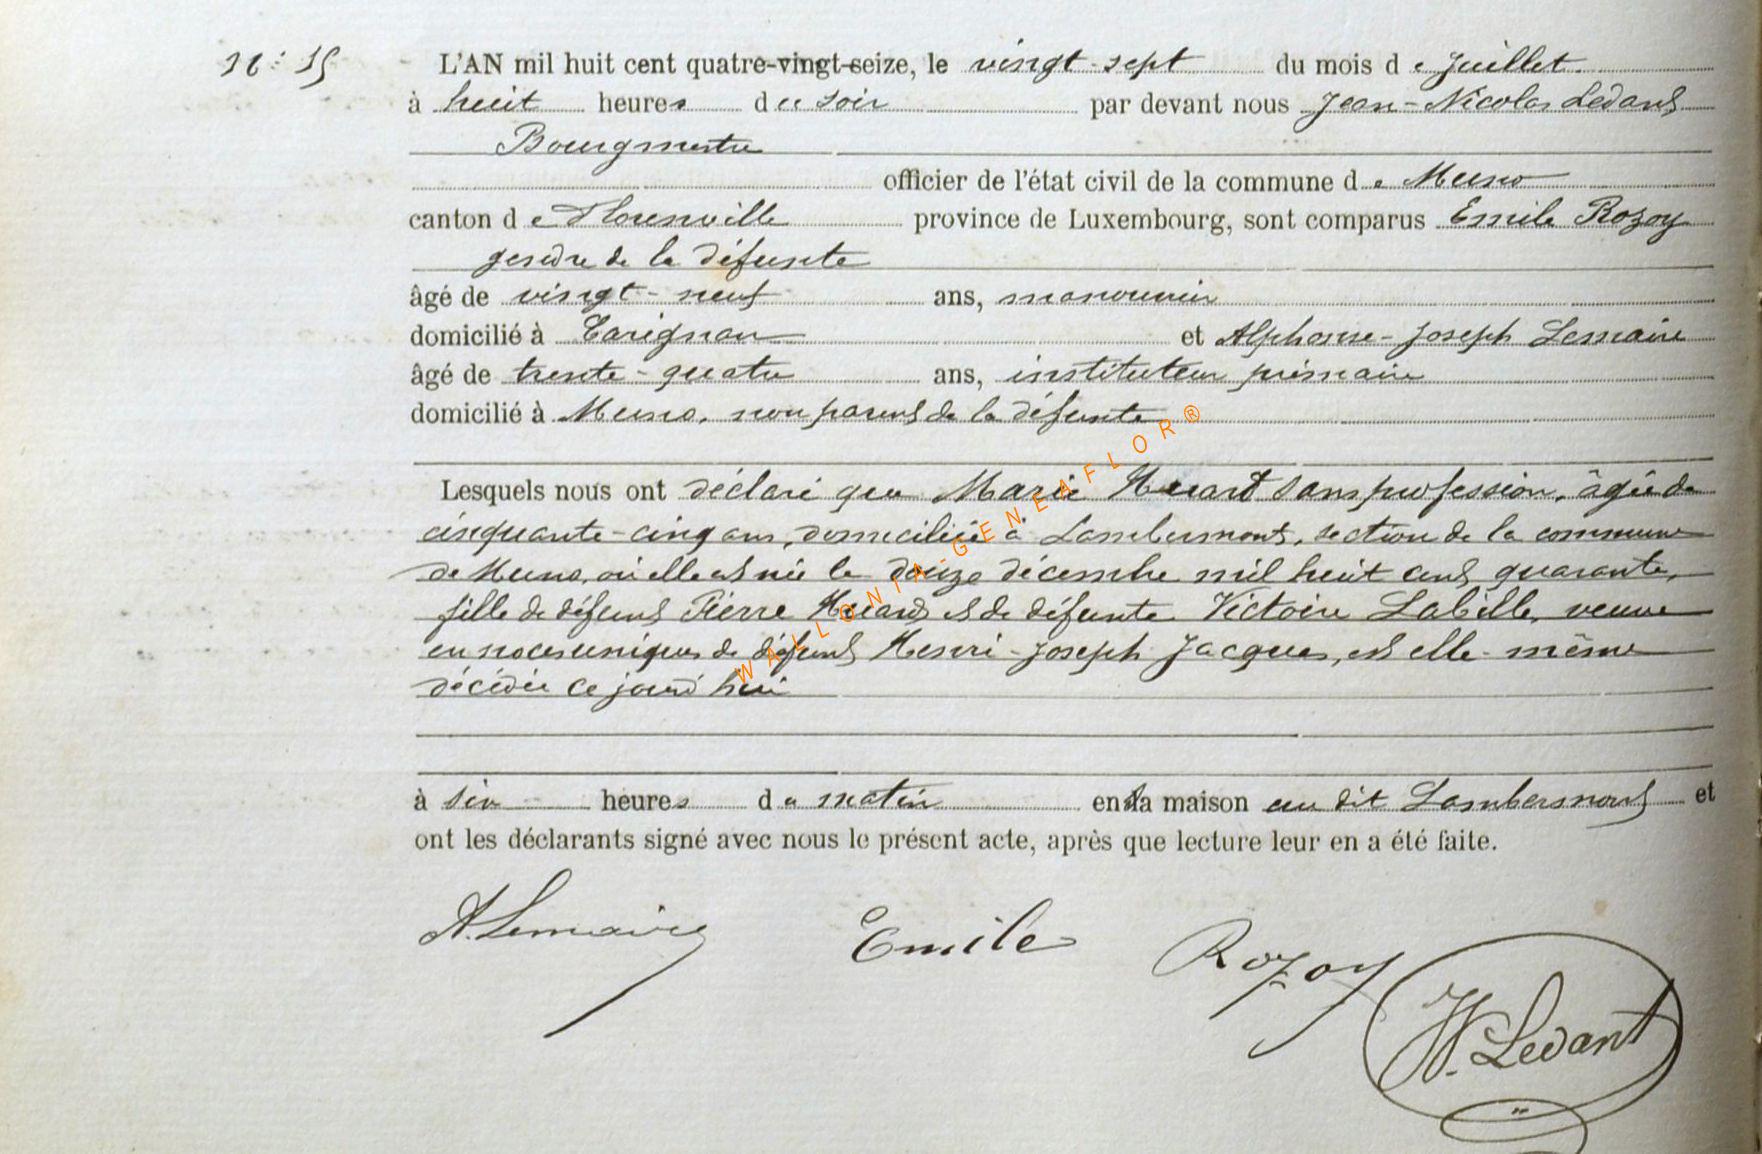 16: 15
L'AN mil huit cent quatre-vingt-seize, le vingt-sept du mois de Juillet.
à huit heures du soir par devant nous Jean-Nicolas Ledant
Bourgmestre
officier de l'état civil de la commune de Muno
canton de Florenville province de Luxembourg, sont comparus Emile Rozoy
gendre de la défunte
âgé de vingt-neuf ans, manouvrier
domicilié à Carignan et Alphonse-Joseph Lemaire
âgé de trente-quatre ans, instituteur primaire
domicilié à Muno, non parent de la défunte
Lesquels nous ont déclaré que Marie Huard sans profession, âgée de
cinquante-cinq ans, domiciliée à Lambermont, section de la commune
de Muno, où elle est née le douze décembre mil huit cent quarante,
fille de défunt Pierre Huard et de défunte Victoire Labille, veuve
en noces uniques de défunt Henri-Joseph Jacques, est elle-même
décédée ce jourd'hui
à six heures du matin en sa maison au dit Lambermont et
ont les déclarants signé avec nous le présent acte, après que lecture leur en a été faite.
A. Lemaire Emile Rozoy
N. Ledant
WALLONIA-GENEAFLOR®